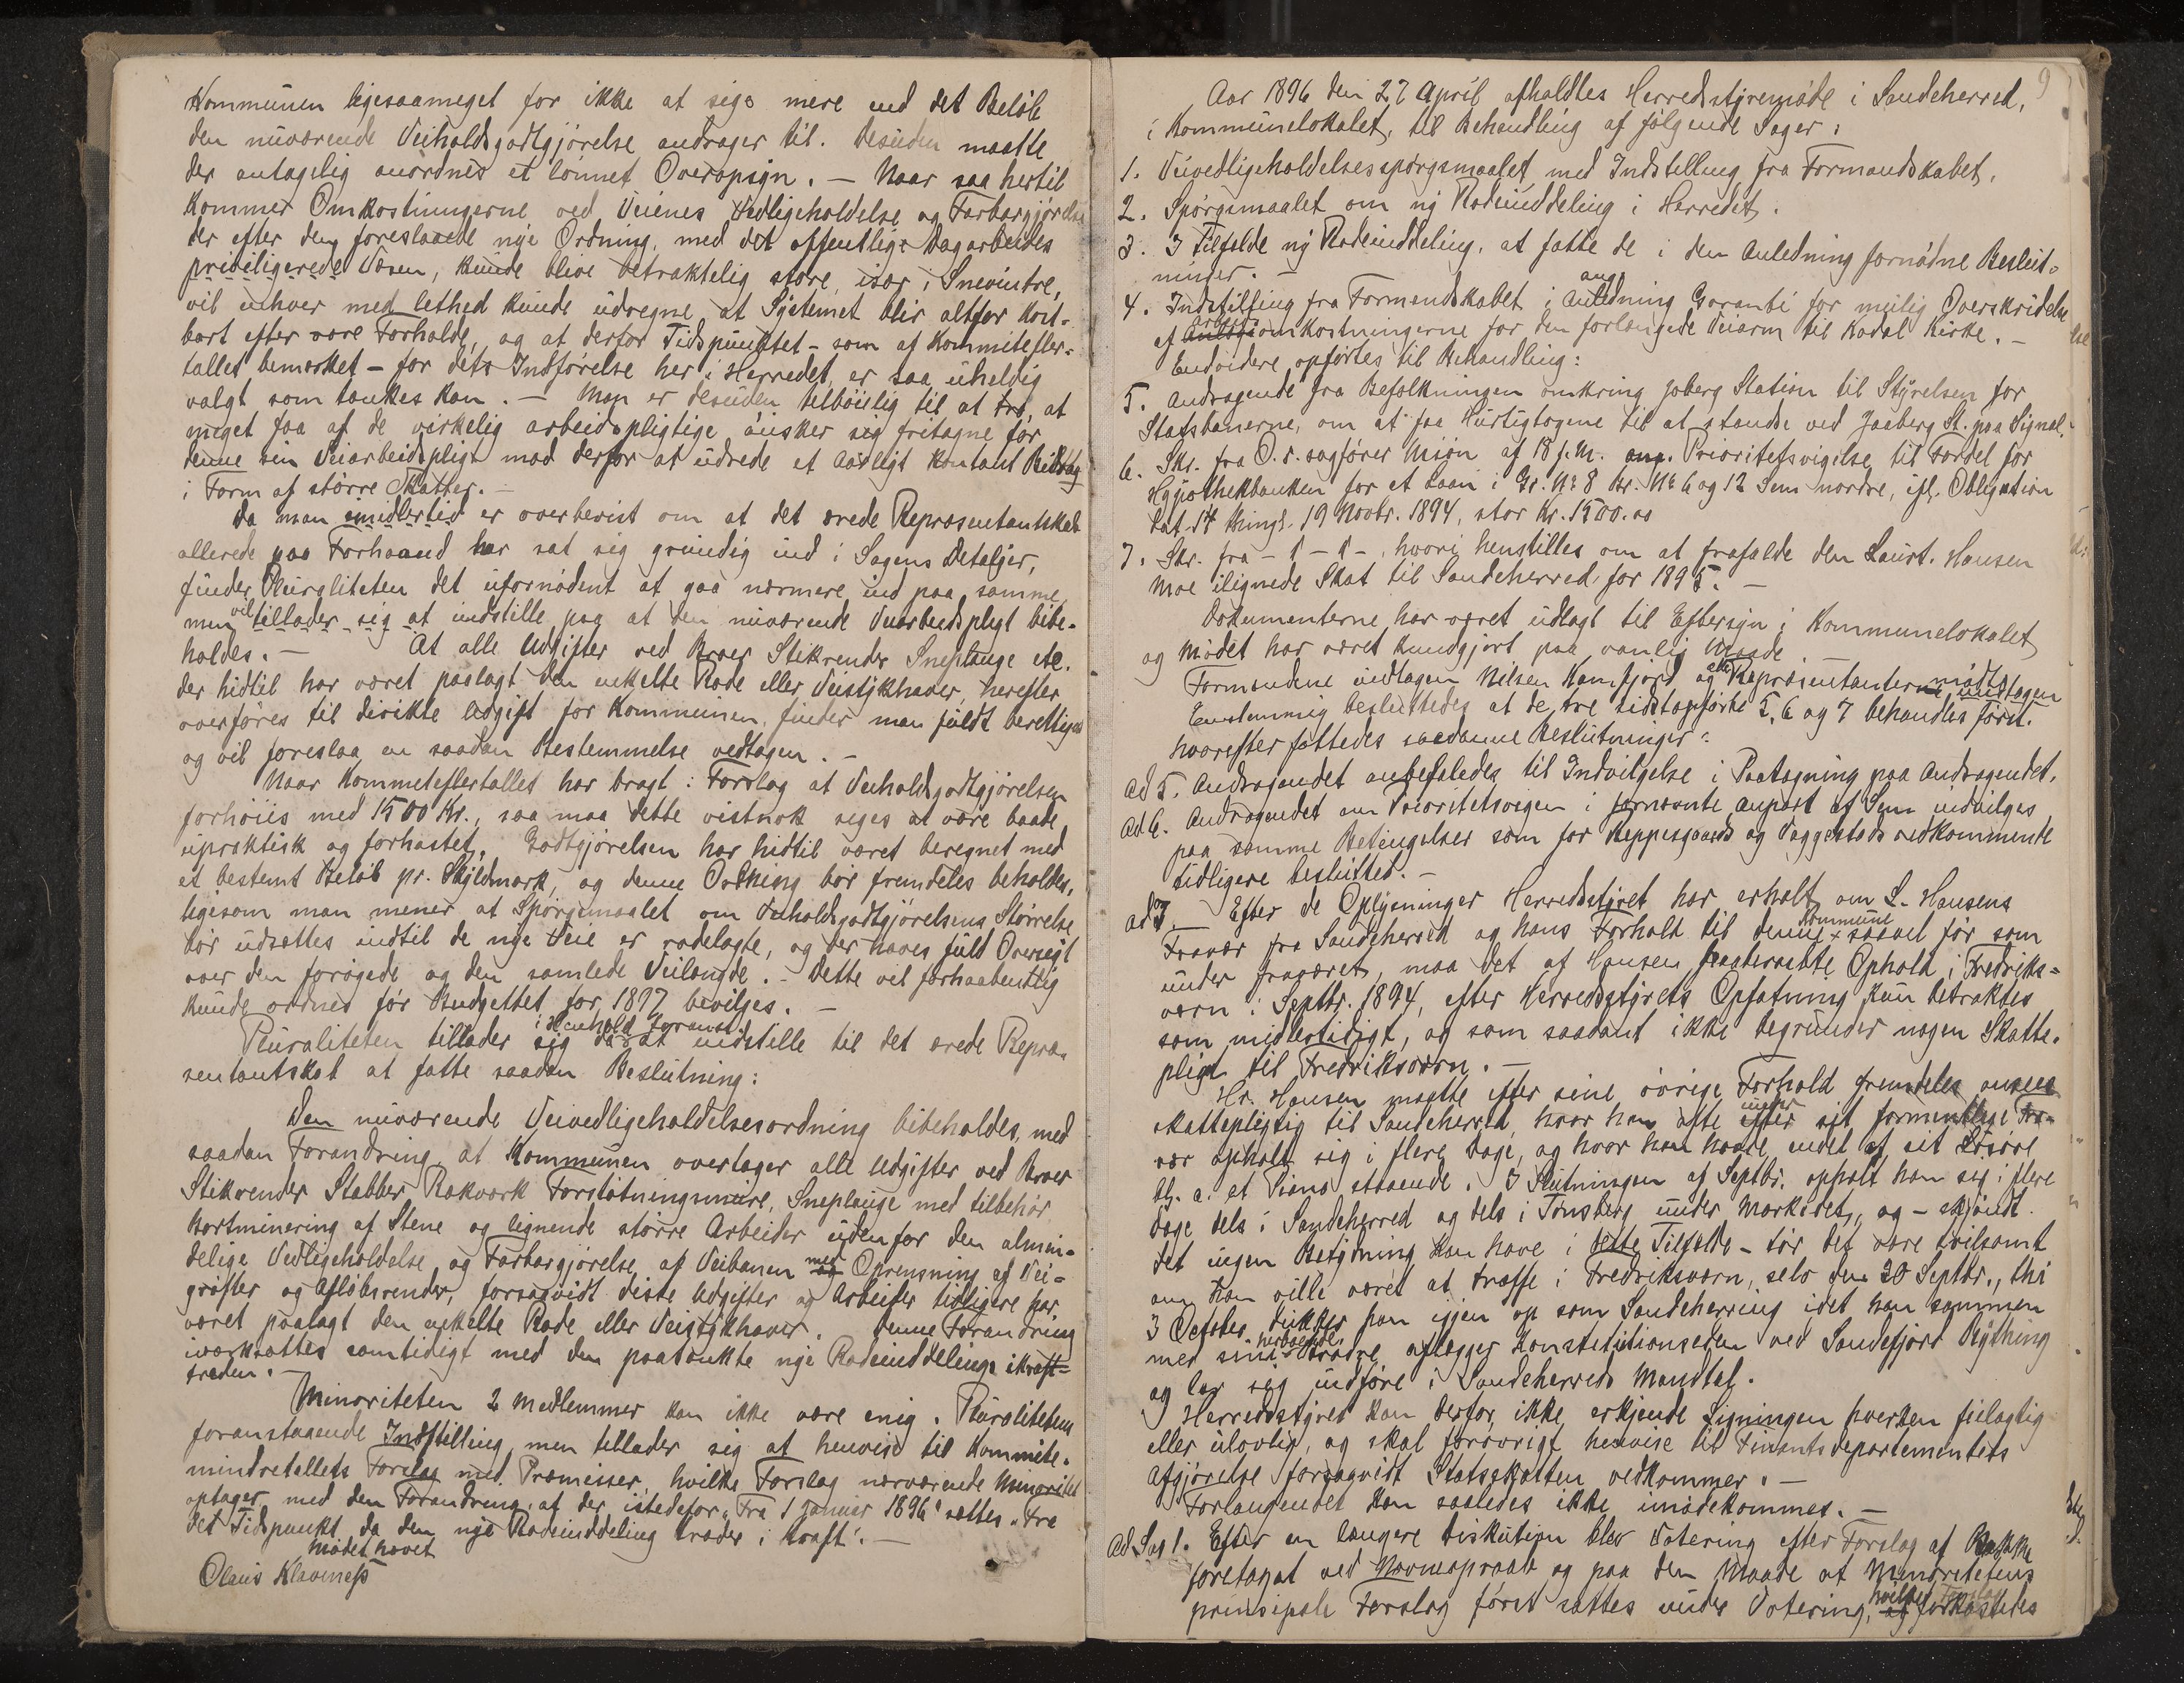 Kommunen ligesaameget for ikke at sige mere end det Beløb
den nuværende Veiholdsgodtgjørelse andrager til. Desuden maatte
der antagelig anordnes et lønnet Overopsyn. — Naar saa hertil
kommer Omkostningerne ved Veienes Vedligeholdelse og Farbargjørelse
der efter den foreslaaede nye Ordning, med det offentlige Dagarbeides
priviligerede Væsen, kunde blive betraktelig store, især i Snevintre,
vil enhver med lethed kunde udregne at Systemet blir altfor kost-
bart efter vore Forholde, og at derfor Tidspunktet – som af Kommitefler-
tallet bemærket – for dets Indførelse her i Herredet, er saa uheldig
valgt som tænkes kan. — Man er desuden tilbøielig til at tro, at
meget faa af de virkelig arbeidspligtige ønsker sig fritagne for
denne sin Veiarbeidspligt mod derfor at udrede et aarligt kontant Bidrag
i Form af større Skatter. —
Da man imidlertid er overbevist om at det ærede Repræsentantskab
allerede paa Forhaand har sat sig grundig ind i Sagens Detaljer,
finder Pluraliteten det ufornødent at gaa nærmere ind paa samme,
men vil tillader sig at indstille paa at den nuværende Veiarbeidspligt bibe-
holdes. — At alle Udgifter ved Broer Stikrender Sneplouge etc.
der hidtil har været paalagt den enkelte Rode eller Veistykhaver, herefter
overføres til dirikte Udgift for Kommunen, finder man fuldt berettiget
og vil foreslaa en saadan Bestemmelse vedtagen. —
Naar Kommiteflertallet har bragt i Forslag at Veiholdsgodtgjørelsen
forhøiis med 1500 Kr., saa maa dette vistnok siges at være baade
upraktisk og forhastet. Godtgjørelsen har hidtil været beregnet med
et bestemt Beløb pr. Skyldmark, og denne Ordning bør fremdeles beholdes,
ligesom man mener at Spørgsmaalet om Veiholdsgodtgjørelsens Størrelse
bør udsættes indtil de nye Veie er rodelagte, og der haves fuld Oversigt
over den forøgede og den samlede Veilængde. – Dette vil forhaabentlig
kunde ordnes før Budgettet for 1897 bevilges. —
Pluraliteten tillader sig i Henhold foranst. at indstille til det ærede Repræ-
sentantskab at fatte saadan Beslutning:
Den nuværende Veivedligeholdelsesordning bibeholdes, med
saadan Forandring at Kommunen overtager alle Udgifter ved Broer
Stikrender Stabber Rækværk Forstøtningsmure, Sneplouge med tilbehør
Bortminering af Stene og lignende større Arbeider udenfor den almin-
delige Vedligeholdelse og Farbargjørelse af Veibanen med Oprensning af Vei-
grøfter og Afløbsrender, forsaavidt disse Udgifter og Arbeider tidligere har
været paalagt den enkelte Rode eller Veistykhaver. Denne Forandring
iværksættes samtidigt med den paatænkte nye Rodeinddelings ikraft-
træden. —
Minoriteten 2 Medlemmer kan ikke være enig i Pluralitetens
foranstaaende Indstilling, men tillader sig at henvise til Kommite-
mindretallets Forslag med Præmisser, hvilke Forslag nærværende Minoritet
optager med den Forandring, at der istedefor „Fra 1 Januar 1896" sættes „Fra
det Tidspunkt da den nye Rodeinddeling træder i Kraft". —
Mødet hævet
Olaus Klavness
9
Aar 1896 den 27 April afholdtes Herredsstyremøde i Sandeherred,
i Kommunelokalet, til Behandling af følgende Sager:
1. Veivedligeholdelsesspørgsmaalet, med Indstilling fra Formandskabet.
2. Spørgsmaalet om ny Rodeinddeling i Herredet.
3. I Tilfælde ny Rodeinddeling, at fatte de i den Anledning fornødne Beslut-
ninger. —
4. Indstilling fra Formandskabet i Anledning ang. Garanti for mulig Overskridelse
af Anlægsomkostningerne for den forlængede Veiarm til Kodal Kirke. —
Endvidere opførtes til Behandling:
5. Andragende fra Befolkningen omkring Joberg Station til Styrelsen for
Statsbanerne, om at faa Hurtigtogene til at standse ved Jaaberg St. paa Signal.
6. Skr. fra O.r.sagfører Mjøn af 18 f.M. ang. Prioritetsvigelse til Fordel for
Hypothekbanken for et Laan i Gr. No 8 Br. No 6 og 12 Sem nordre, ifl. Obligation
dat. 14 thingl. 19 Novbr. 1894, stor Kr. 1500.00
7. Skr. fra – " – " –, hvori henstilles om at frafalde den Laurt. Hansen
Moe ilignede Skat til Sandeherred for 1895. —
Dokumenterne har været udlagt til Eftersyn i Kommunelokalet,
og Mødet har været kundgjort paa vanlig Maade.
Formændene undtagen Nilsen Kamfjord og Repræsentanterne mødte
Enstemmig besluttedes at de tre sidstopførte 5, 6 og 7 behandles først.
hvorefter fattedes saadanne Beslutninger:
ad 5. Andragendet anbefaledes til Indvilgelse i Paategning paa Andragendet.
ad 6. Andragendet om Prioritetsvigen i fornævnte anpart af Sem indvilges
paa samme Betingelser som for Neppesgaards og Vaggestads vedkommende
tidligere besluttet. —
ad 7. Efter de Oplysninger Herredsstyret har erholt om L. Hansens
Fravær fra Sandeherred og hans Forhold til denne Kommune saavel før som
under fraværet, maa det af Hansen paaberaabte Ophold i Fredriks-
værn i Septbr. 1894, efter Herredsstyrets Opfatning kun betraktes
som midlertidigt, og som saadant ikke begrunder nogen Skatte-
pligt til Fredriksværn. —
Hr. Hansen maatte efter sine øvrige Forhold fremdeles ansees
skattepligtig til Sandeherred, hvor han ofte under sit formentlige Fra-
vær opholt sig i flere Dage, og hvor han havde endel af sit Løsøre
bl. a. et Piano staaende. I Slutningen af Septbr. opholt han sig i flere
Dage dels i Sandeherred og dels i Tønsberg under Markedet, og – skjøndt
det ingen Betydning kan have i dette Tilfælde – tør det være tvilsomt
om han ville været at træffe i Fredriksværn, selv den 30 Septbr., thi
3 October dukker han igjen op som Sandeherring idet han sammen
med sine herboende Brødre aflægger Konstitutionseden ved Sandefjord Bything
og lar sig indføre i Sandeherreds Mandtal.
Herredsstyret kan derfor ikke erkjende Ligningen hverken feilagtig
eller ulovlig, og skal forøvrigt henvise til Finantsdepartementets
Afgjørelse forsaavidt Statsskatten vedkommer. —
Forlangendet kan saaledes ikke imødekommes. —
ad Sag 1. Efter en længere Diskution blev Votering efter Forslag af Bakke
foretaget ved Navneopraab og paa den Maade at Minoritetens
prinsipale Forslag først sattes under Votering, hvilket Forslag forkastedes